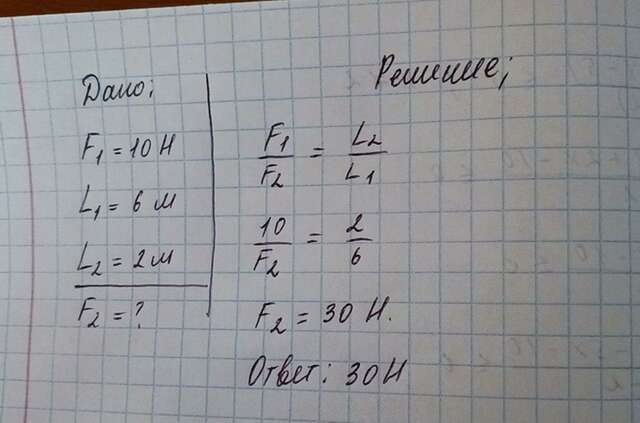 Дано:
F₁ = 10 Н
L₁ = 6 м
L₂ = 2 м
F₂ = ?
Решение;
F₁/F₂ = L₂/L₁
10/F₂ = 2/6
F₂ = 30 Н.
Ответ: 30 Н